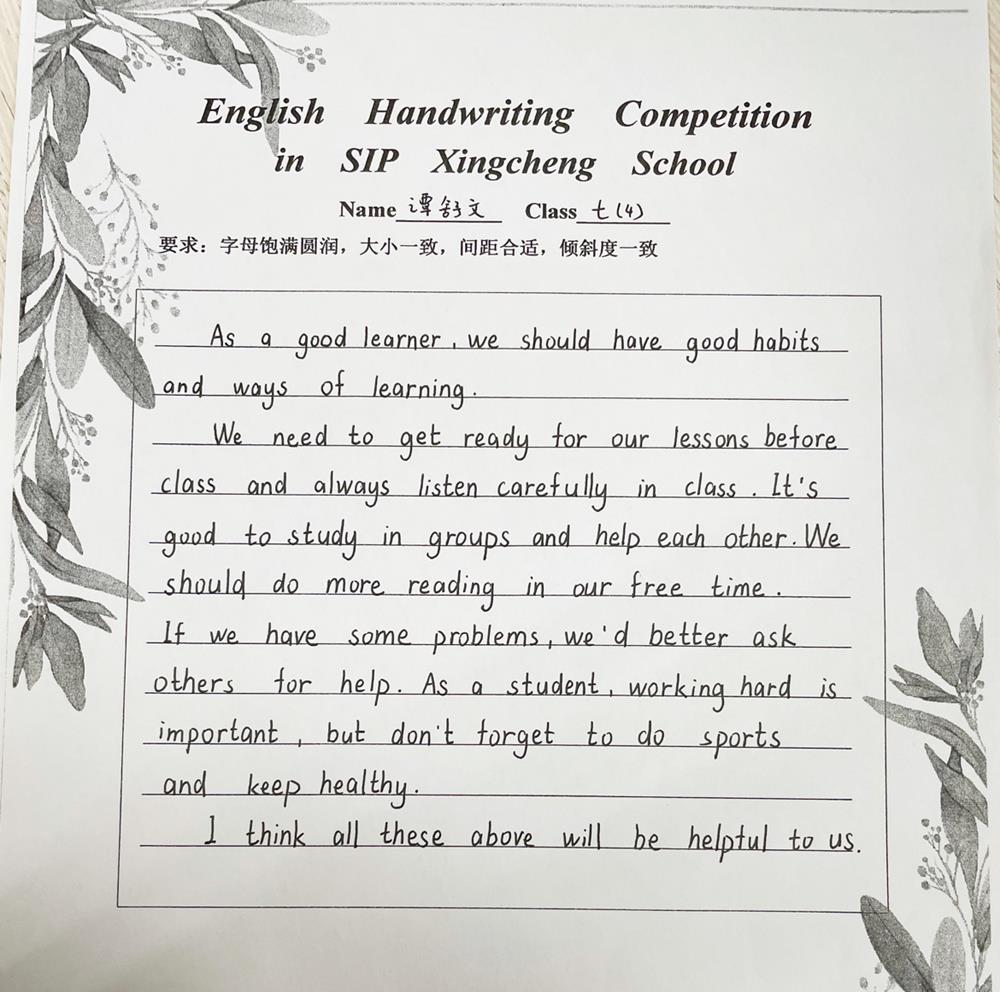 English Handwriting Competition
in SIP Xingcheng School
Name 谭舒文 Class 七(4)
要求：字母饱满圆润，大小一致，间距合适，倾斜度一致
As a good learner, we should have good habits
and ways of learning.
We need to get ready for our lessons before
class and always listen carefully in class. It's
good to study in groups and help each other. We
should do more reading in our free time.
If we have some problems, we'd better ask
others for help. As a student, working hard is
important, but don't forget to do sports
and keep healthy.
I think all these above will be helpful to us.